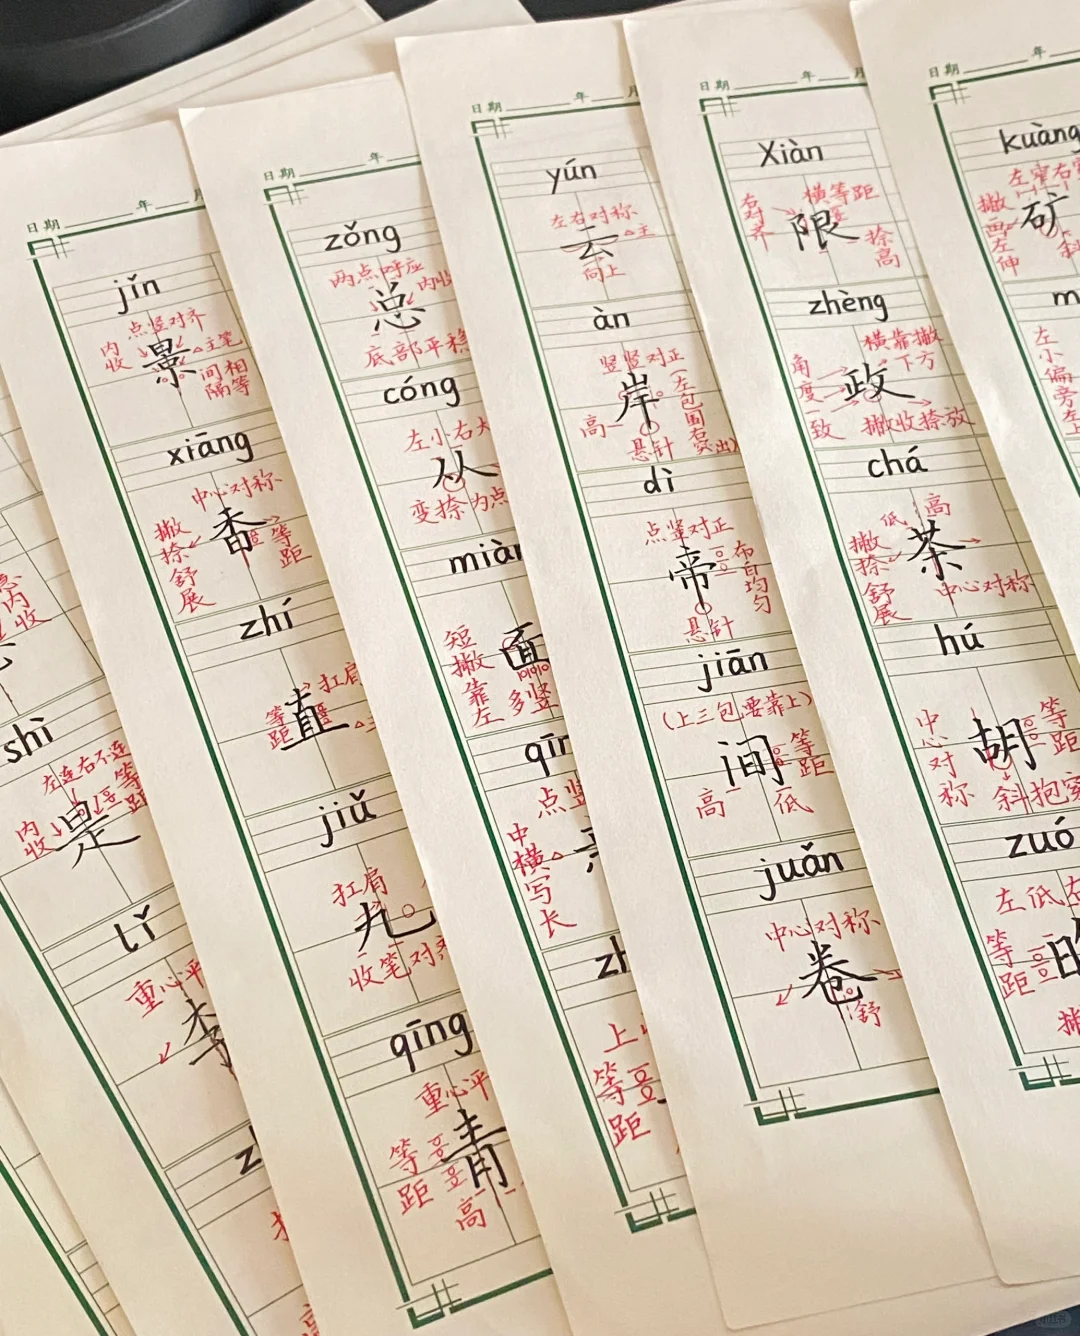 shì
左连右不连
等距
内收
是
lǐ
重心平
李
日期 年 月
jǐn
点竖对齐
内收
主笔
景
间隔相等
xiāng
中心对称
撇捺舒展
香
等距
zhí
扛肩
等距
直
jiǔ
扛肩
九
收笔对齐
qīng
重心平
等距
青
高
日期 年
zǒng
两点呼应
内收
总
底部平稳
cóng
左小右大
从
变捺为点
miàn
短撇靠左
面
多竖
qīn
点竖
中横写长
zh
上
等距
日期 年 月
yún
左右对称
云
主
向上
àn
竖竖对正
岸
(左包围右突出)
高
悬针
dì
点竖对正
帝
布白均匀
悬针
jiān
(上三包,要靠上)
间
等距
高
低
juǎn
中心对称
卷
舒
日期 年 月
Xiàn
右对齐
横等距
限
捺高
zhèng
横靠撇下方
角度一致
政
撇收捺放
chá
低 高
撇捺舒展
茶
中心对称
hú
中心对称
胡
等距
斜抱穿
zuó
左低右
等距
昨
日期 年
kuàng
左窄右宽
撇画左伸
矿
斜
m
左小偏旁左上